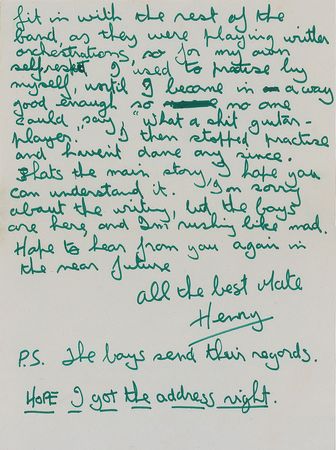 fit in with the rest of the
band, as they were playing written
orchestrations, so for my own
selfreskt I used to practise by
myself, until I became in a way
good enough so no one
could say, "what a shit guitar-
player." I then stopped practise
and havent done any since.
Thats the main story, I hope you
can understand it. I'm sorry
about the writing, but the boys
are here, and I'm rushing like mad.
Hope to hear from you again in
the near future
all the best Mate
Henry
P.S. The boys send their regards.
HOPE I got the address right.